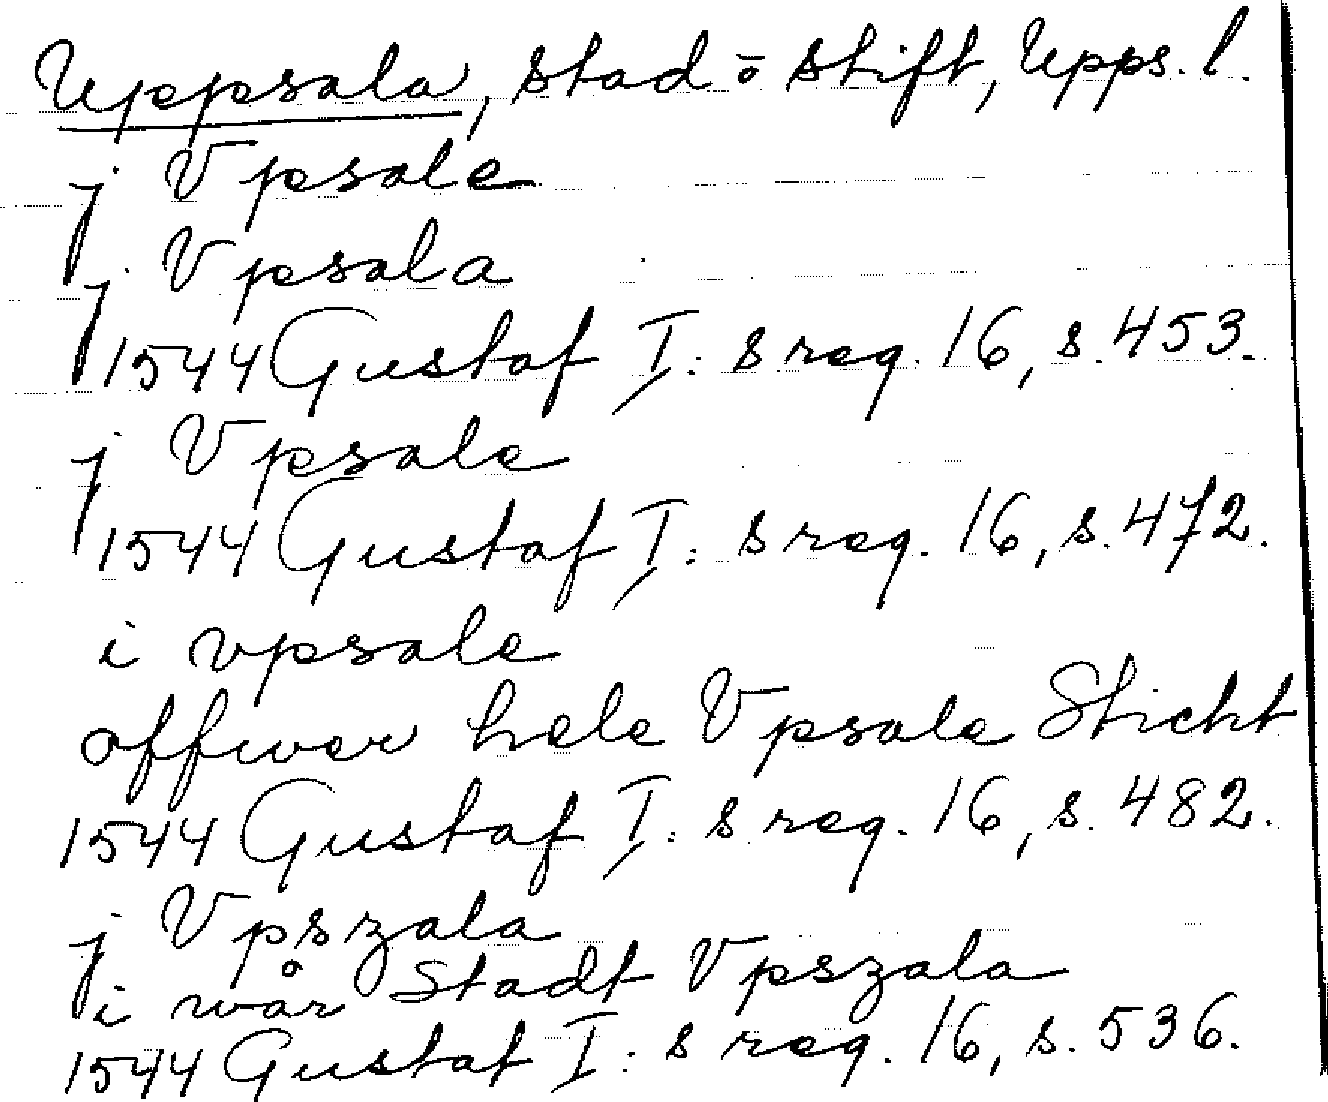 Uppsala, stad ō stift, Upps. l.
j Vpsale
j Vpsala
1544 Gustaf I:s reg. 16, s. 453.
j Vpsale
1544 Gustaf I:s reg. 16, s. 472.
i vpsale
offwer hele Vpsale Sticht
1544 Gustaf I:s reg. 16, s. 482.
j Vpszala
i wår Stadt Vpszala
1544 Gustaf I:s reg. 16, s. 536.